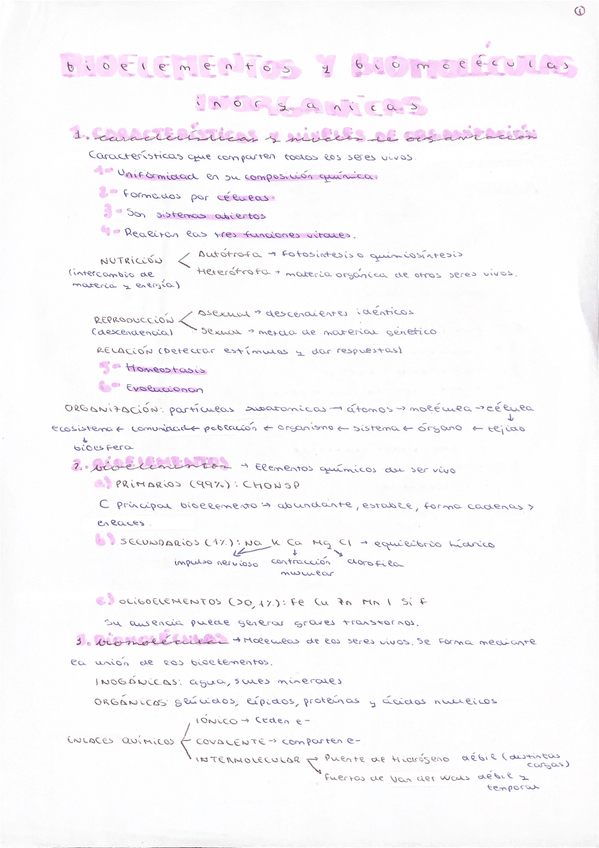 1
bioelementos y biomoléculas
inorganicas
1. CARACTERÍSTICAS Y NIVELES DE ORGANIZACIÓN
Características que comparten todos los seres vivos.
1- Uniformidad en su composición química.
2- Formados por células.
3- Son sistemas abiertos
4- Realizan las tres funciones vitales.
NUTRICIÓN (intercambio de materia y energía)
Autótrofa → fotosíntesis o quimiosíntesis
Heterótrofa → materia orgánica de otros seres vivos.
REPRODUCCIÓN (descendencia)
Asexual → descendientes idénticos
Sexual → mezcla de material genético
RELACIÓN (Detectar estímulos y dar respuestas)
5- Homeostasis
6- Evolucionan
ORGANIZACIÓN: partículas subatomicas → átomos → molécula → célula
ecosistema ← comunidad ← población ← organismo ← sistema ← órgano ← tejido
bioesfera
2. BIOELEMENTOS → Elementos químicos du ser vivo
a) PRIMARIOS (99%): CHONSP
C principal bioelemento → abundante, estable, forma cadenas y
enlaces.
b) SECUNDARIOS (1%): Na K Ca Mg Cl → equilibrio hídrico
impulso nervioso contracción clorofila
muscular
c) OLIGOELEMENTOS (>0,1%): Fe Cu Zn Mn I Si F
Su ausencia puede generar graves trastornos.
3. BIOMOLÉCULAS → Moleculas de los seres vivos. Se forma mediante
la unión de los bioelementos.
INOGÁNICAS: agua, sales minerales
ORGÁNICAS: glúcidos, lípidos, proteínas y ácidos nucleicos
ENLACES QUÍMICOS
IÓNICO → Ceden e-
COVALENTE → comparten e-
INTERMOLECULAR
Puente de Hidrógeno débil (distintas
cargas)
Fuerzas de Van der Wals débil y
temporal